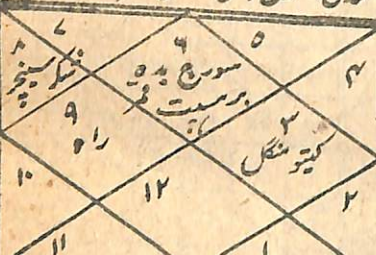 ۷
۸
شکر سنیچر
۶
سورج بدھ
برسپت قمر
۵
۴
۹
راہ
۳
کیتو منگل
۱۰
۱۲
۲
۱۱
۱